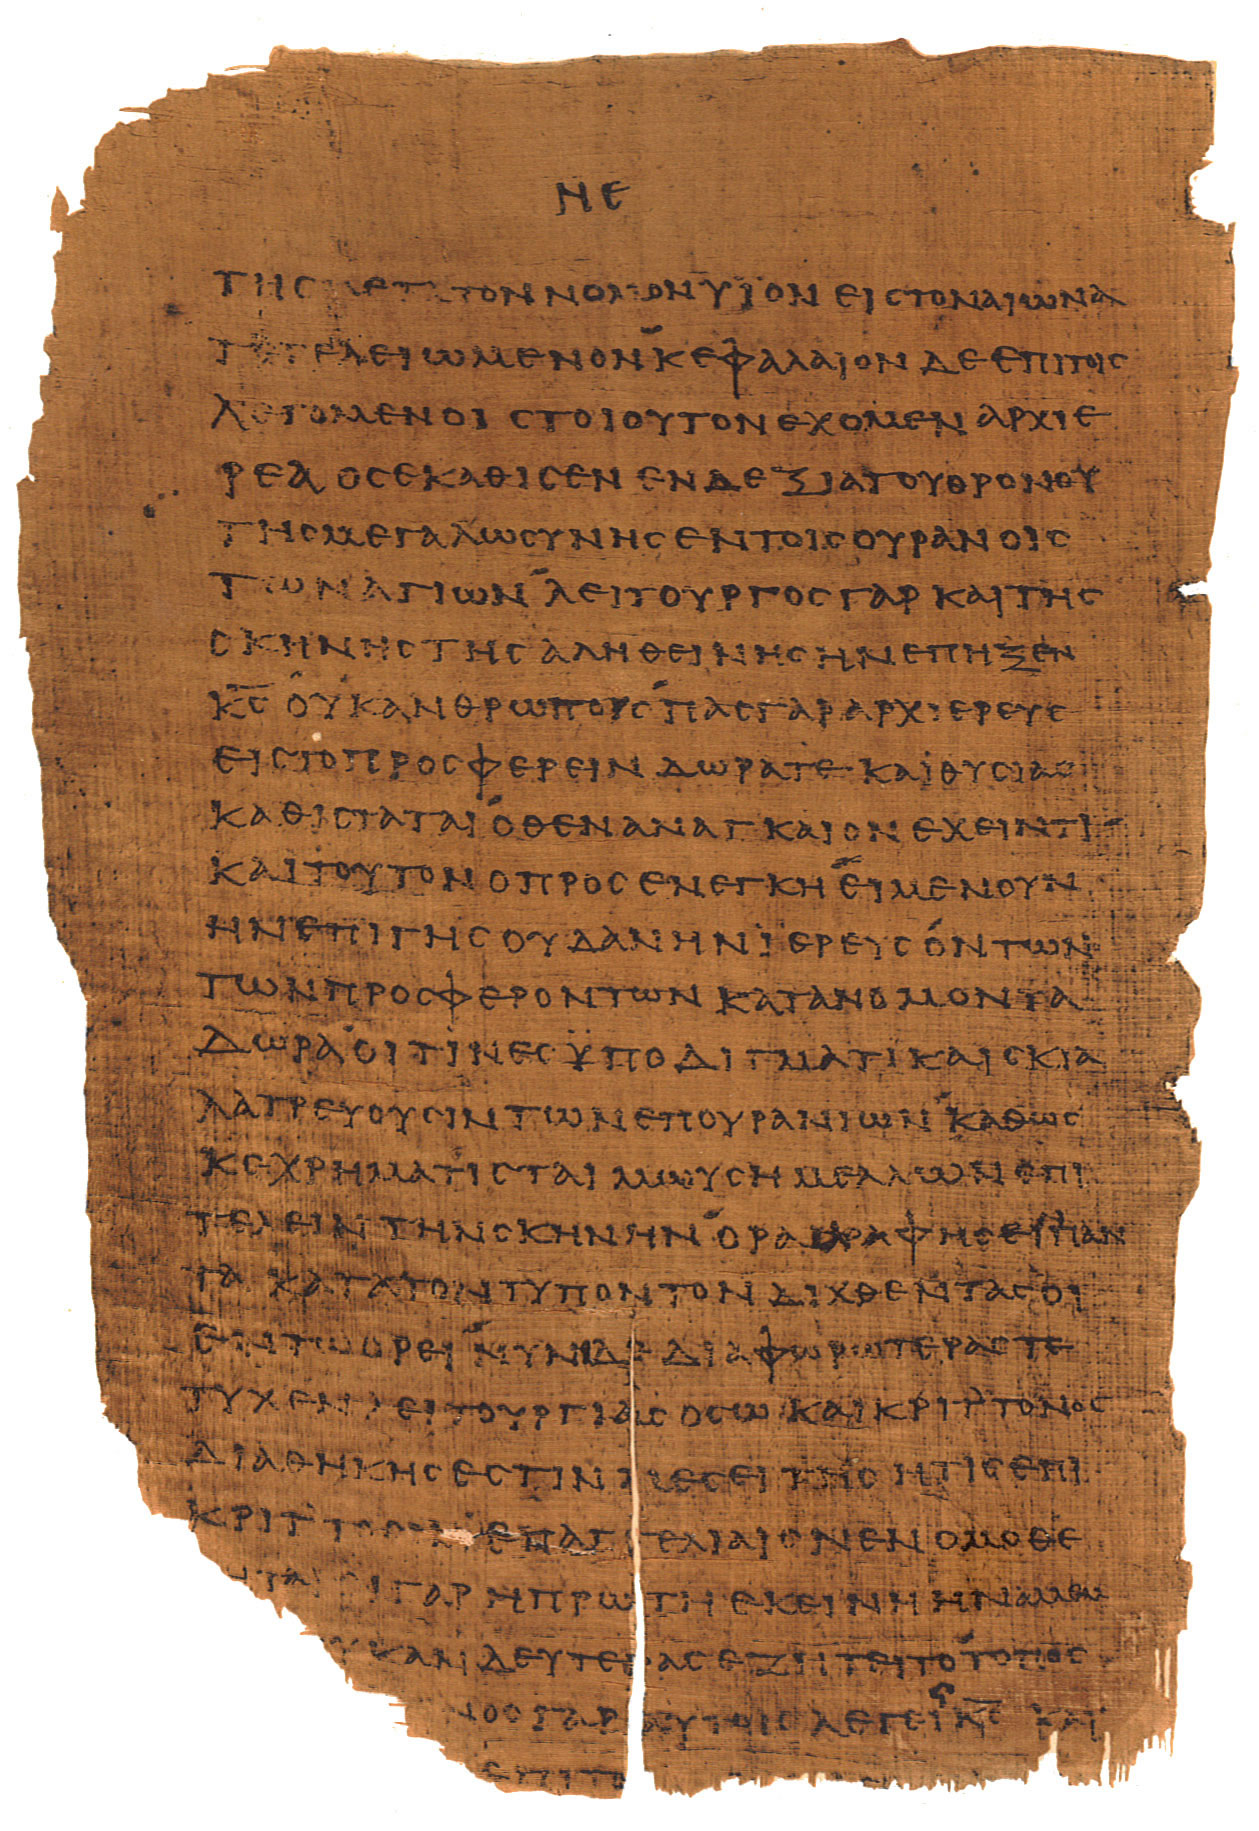 ΝΕ
ΤΗΣ ΜΕΤΑ ΤΟΝ ΝΟΜΟΝ ΥΙΟΝ ΕΙΣ ΤΟΝ ΑΙΩΝΑ
ΤΕΤΕΛΕΙΩΜΕΝΟΝ ΚΕΦΑΛΑΙΟΝ ΔΕ ΕΠΙ ΤΟΙΣ
ΛΕΓΟΜΕΝΟΙΣ ΤΟΙΟΥΤΟΝ ΕΧΟΜΕΝ ΑΡΧΙΕ
ΡΕΑ ΟΣ ΕΚΑΘΙΣΕΝ ΕΝ ΔΕΞΙΑ ΤΟΥ ΘΡΟΝΟΥ
ΤΗΣ ΜΕΓΑΛΩΣΥΝΗΣ ΕΝ ΤΟΙΣ ΟΥΡΑΝΟΙΣ
ΤΩΝ ΑΓΙΩΝ ΛΕΙΤΟΥΡΓΟΣ ΓΑΡ ΚΑΙ ΤΗΣ
ΣΚΗΝΗΣ ΤΗΣ ΑΛΗΘΕΙΝΗΣ ΗΝ ΕΠΗΞΕΝ
ΚΣ ΟΥΚ ΑΝΘΡΩΠΟΥΣ ΠΑΣ ΓΑΡ ΑΡΧΙΕΡΕΥΣ
ΕΙΣ ΤΟ ΠΡΟΣΦΕΡΕΙΝ ΔΩΡΑ ΤΕ ΚΑΙ ΘΥΣΙΑΣ
ΚΑΘΙΣΤΑΤΑΙ ΟΘΕΝ ΑΝΑΓΚΑΙΟΝ ΕΧΕΙΝ ΤΙ
ΚΑΙ ΤΟΥΤΟΝ Ο ΠΡΟΣΕΝΕΓΚΗ ΕΙ ΜΕΝ ΟΥΝ
ΗΝ ΕΠΙ ΓΗΣ ΟΥΔ ΑΝ ΗΝ ΙΕΡΕΥΣ ΟΝΤΩΝ
ΤΩΝ ΠΡΟΣΦΕΡΟΝΤΩΝ ΚΑΤΑ ΝΟΜΟΝ ΤΑ
ΔΩΡΑ ΟΙΤΙΝΕΣ ΫΠΟΔΙΓΜΑΤΙ ΚΑΙ ΣΚΙΑ
ΛΑΤΡΕΥΟΥΣΙΝ ΤΩΝ ΕΠΟΥΡΑΝΙΩΝ ΚΑΘΩΣ
ΚΕΧΡΗΜΑΤΙΣΤΑΙ ΜΩΥΣΗ ΜΕΛΛΩΝ ΕΠΙ
ΤΕΛΕΙΝ ΤΗΝ ΣΚΗΝΗΝ ΟΡΑ ΦΗΣΕΙ ΠΑΝ
ΤΑ ΚΑΤΑ ΤΟΝ ΤΥΠΟΝ ΤΟΝ ΔΙΧΘΕΝΤΑ ΣΟΙ
ΕΝ ΤΩ ΟΡΕΙ ΝΥΝΙ ΔΕ ΔΙΑΦΩΡΩΤΕΡΑΣ ΤΕ
ΤΥΧΕΝ ΛΕΙΤΟΥΡΓΙΑΣ ΟΣΩ ΚΑΙ ΚΡΙΤΤΟΝΟΣ
ΔΙΑΘΗΚΗΣ ΕΣΤΙΝ ΜΕΣΕΙΤΗΣ ΗΤΙΣ ΕΠΙ
ΚΡΙΤΤΟΣΙΝ ΕΠΑΓΓΕΛΙΑΙΣ ΝΕΝΟΜΟΘΕ
ΤΗΤΑΙ ΕΙ ΓΑΡ Η ΠΡΩΤΗ ΕΚΕΙΝΗ ΗΝ ΑΜΕΜ
ΟΥΚ ΑΝ ΔΕΥΤΕΡΑΣ ΕΖΗΤΕΙΤΟ ΤΟΠΟΣ
ΜΕΝΟΣ ΓΑΡ ΑΥΤΟΙΣ ΛΕΓΕΙ ΚΣ ΚΑΙ
ΕΠΙ ΤΟ